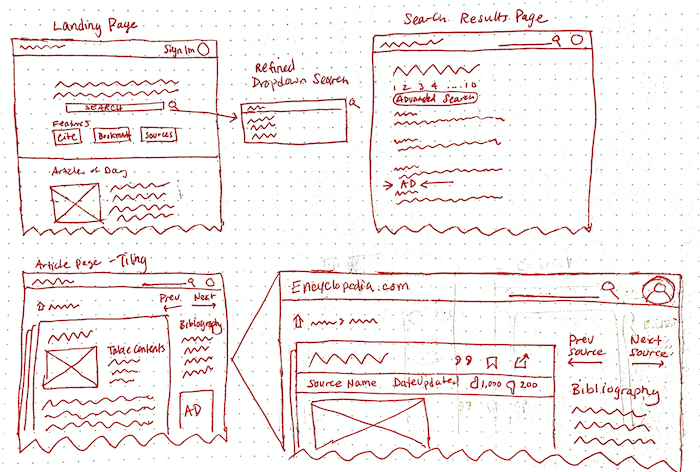 Landing Page
Sign In
SEARCH
Features
Cite
Bookmark
Sources
Article of Day
Refined
Dropdown Search
Search Results Page
1 2 3 4 ....10
Advanced Search
AD
Article page - Tiling
Prev. Next
Bibliography
Table Contents
AD
Encyclopedia.com
Source Name DateUpdated 1,000 200
Prev Next
Source Source
Bibliography